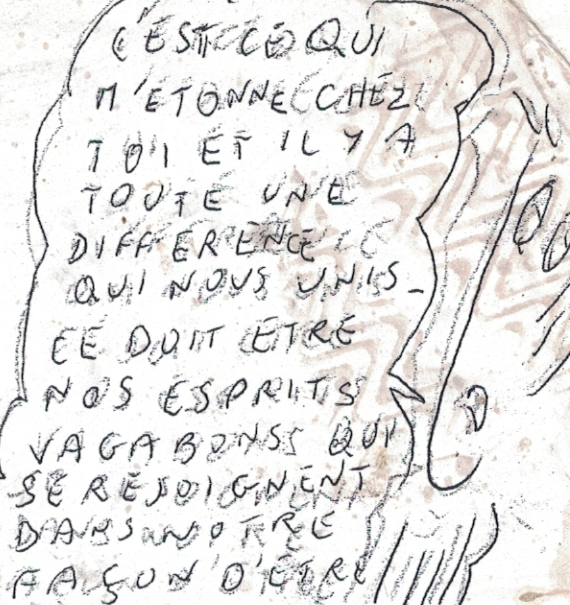 C'EST CE QUI
M'ETONNE CHEZ
TOI ET IL Y A
TOUTE UNE
DIFFERENCE
QUI NOUS UNIS -
CE DOIT ETRE
NOS ESPRITS
VAGABONSS QUI
SE REJOIGNENT
DANS NOTRE
FAÇON D'ÊTRE